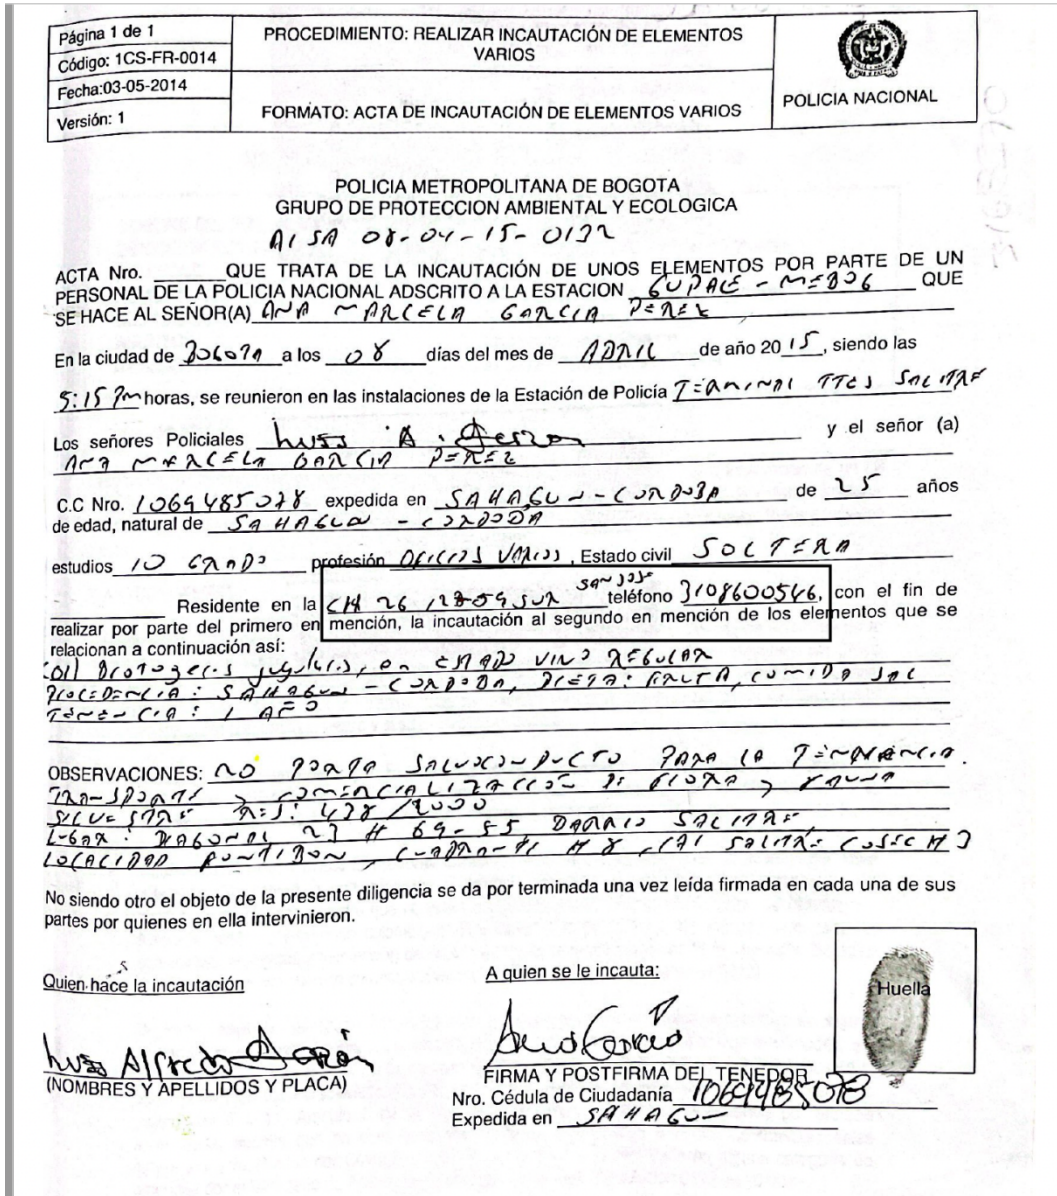 Página 1 de 1
Código: 1CS-FR-0014
Fecha:03-05-2014
Versión: 1
PROCEDIMIENTO: REALIZAR INCAUTACIÓN DE ELEMENTOS
VARIOS
FORMATO: ACTA DE INCAUTACIÓN DE ELEMENTOS VARIOS
POLICIA NACIONAL
POLICIA METROPOLITANA DE BOGOTA
GRUPO DE PROTECCION AMBIENTAL Y ECOLOGICA
AI SA 08-04-15-0132
ACTA Nro. ______ QUE TRATA DE LA INCAUTACIÓN DE UNOS ELEMENTOS POR PARTE DE UN
PERSONAL DE LA POLICIA NACIONAL ADSCRITO A LA ESTACION GUPAE - MEBOG QUE
SE HACE AL SEÑOR(A) ANA MARCELA GARCIA PEREZ
En la ciudad de BOGOTA a los 08 días del mes de ABRIL de año 2015, siendo las
5:15 Pm horas, se reunieron en las instalaciones de la Estación de Policía TERMINAL TTES SALITRE
Los señores Policiales Luis A. y el señor (a)
ANA MARCELA GARCIA PEREZ
C.C Nro. 1069485078 expedida en SAHAGUN - CORDOBA de 25 años
de edad, natural de SAHAGUN - CORDOBA
estudios 10 GRADO profesión OFICIOS VARIOS, Estado civil SOLTERA
SAN JOSE
Residente en la teléfono 3108600546, con el fin de
realizar por parte del primero en mención, la incautación al segundo en mención de los elementos que se
relacionan a continuación así:
(01) Brotogeris jugularis, en ESTADO VIVO REGULAR
PROCEDENCIA: SAHAGUN - CORDOBA, DIETA: FRUTA, COMIDA SAL
TENENCIA: 1 AÑO
OBSERVACIONES: NO PORTA SALVOCONDUCTO PARA LA TENENCIA
TRANSPORTE Y COMERCIALIZACION DE FLORA Y FAUNA
SILVESTRE RES: 438/2000
LUGAR: DIAGONAL 23 # 69-55, BARRIO SALITRE,
LOCALIDAD FONTIBON, CUADRANTE # 8, CAI SALITRE
No siendo otro el objeto de la presente diligencia se da por terminada una vez leída firmada en cada una de sus
partes por quienes en ella intervinieron.
Quien hace la incautación
A quien se le incauta:
Huella
Luis Alfredo
(NOMBRES Y APELLIDOS Y PLACA)
Ana Garcia
FIRMA Y POSTFIRMA DEL TENEDOR
Nro. Cédula de Ciudadanía 1069485078
Expedida en SAHAGUN